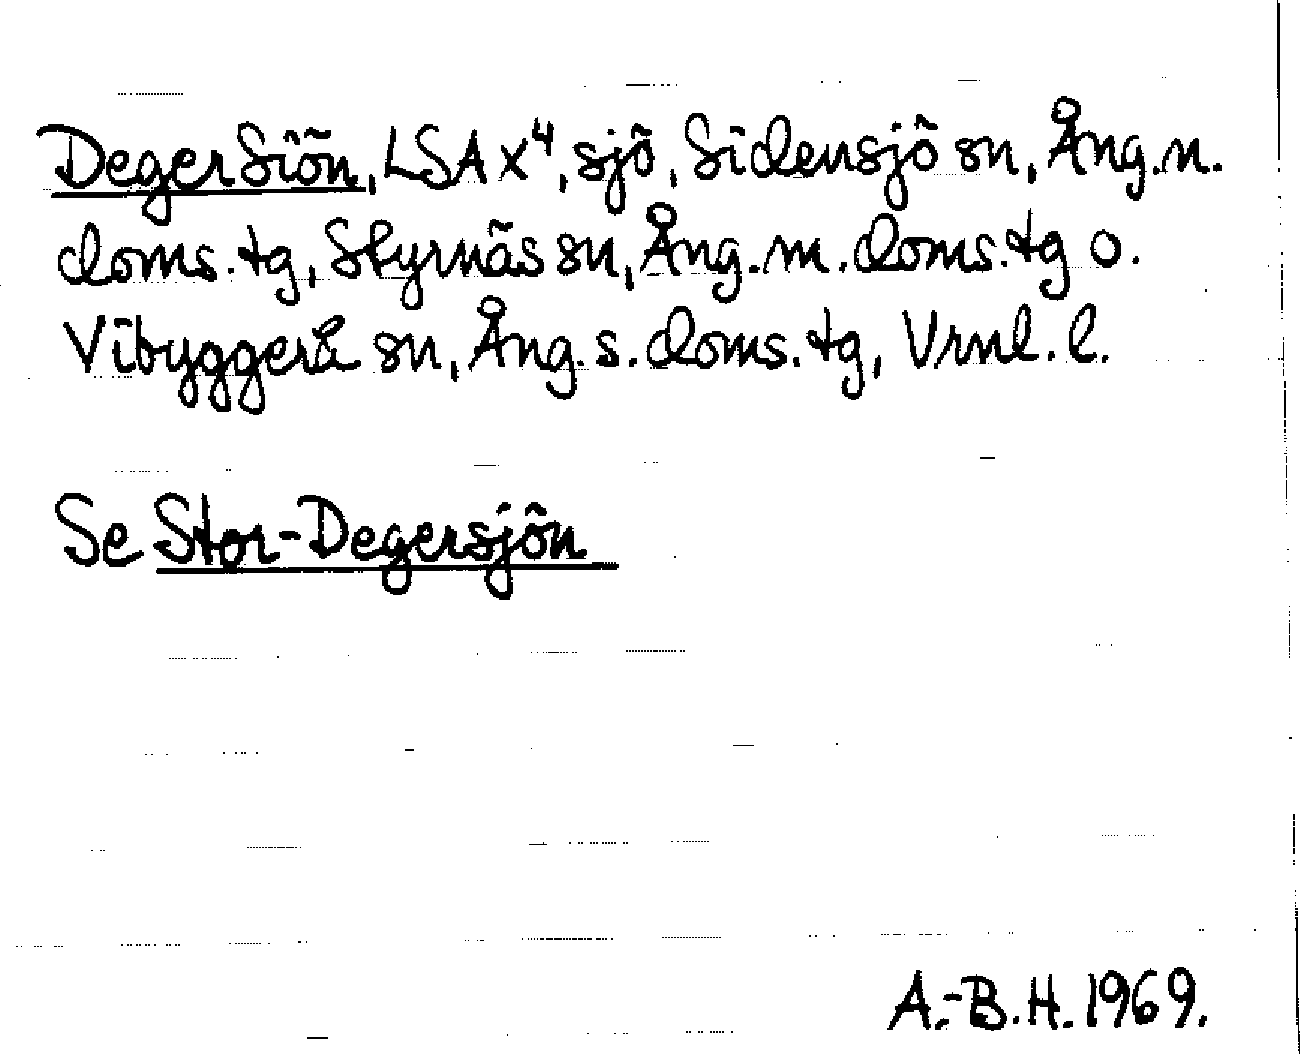 DegerSiön, LSA X⁴, sjö, Sidensjö sn, Ång. n.
doms. tg, Skyrnäs sn, Ång. m. doms. tg o.
Vibyggerå sn, Ång. s. doms. tg, Vrnl. l.
Se Stor-Degersjön
A.-B. H. 1969.